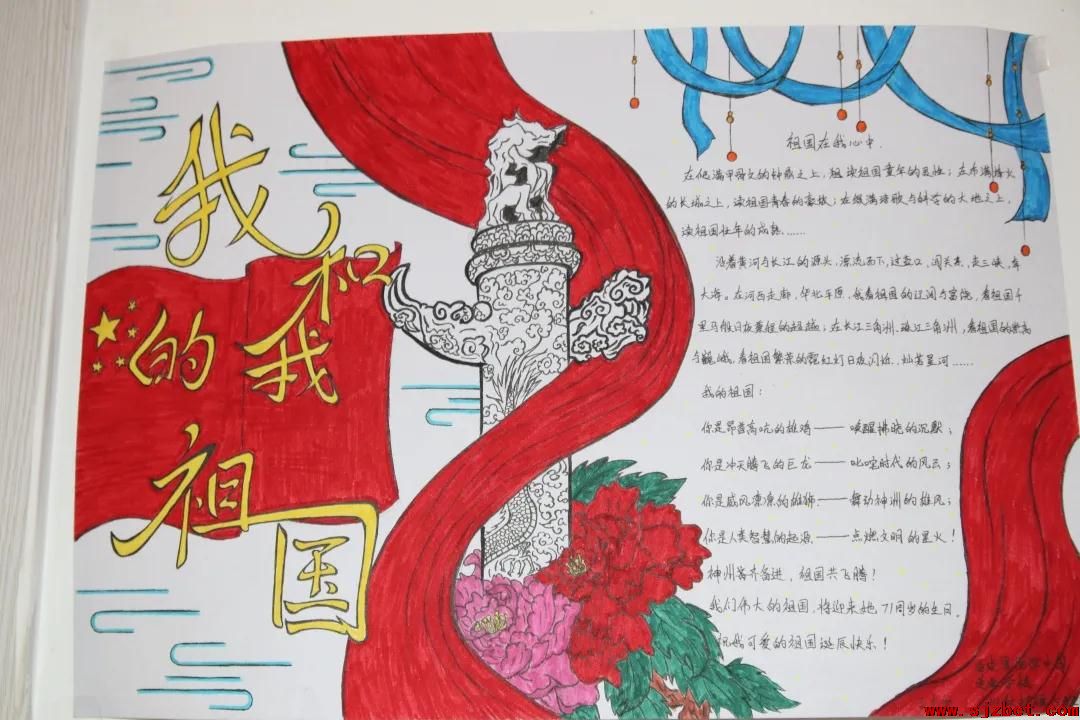 我和我
的祖国
祖国在我心中.
在低满甲骨文的钟鼎之上,短读祖国童年的灵性;在布满烽火
的长城之上,读祖国青春的豪放;在缀满诗歌与鲜花的大地之上,
读祖国壮年的成熟……
沿着黄河与长江的源头,漂流而下,过壶口,闯关东,走三峡,奔
大海。在河西走廊,华北平原,我看祖国的辽阔与富饶,看祖国千
里马般日夜兼程的超越;在长江三角洲、珠江三角洲,看祖国的崇高
与巍峨,看祖国繁荣的霓虹灯日夜闪烁,灿若星河……
我的祖国:
你是昂首高吭的雄鸡——唤醒拂晓的沉默;
你是冲天腾飞的巨龙——叱咤时代的风云;
你是威风凛凛的雄狮——舞动神州的雄风;
你是人类智慧的起源——点燃文明的星火!
神州齐奋进,祖国共飞腾!
我们伟大的祖国,将迎来她71周岁的生日。
祝我可爱的祖国诞辰快乐!
www.sjzbei.com